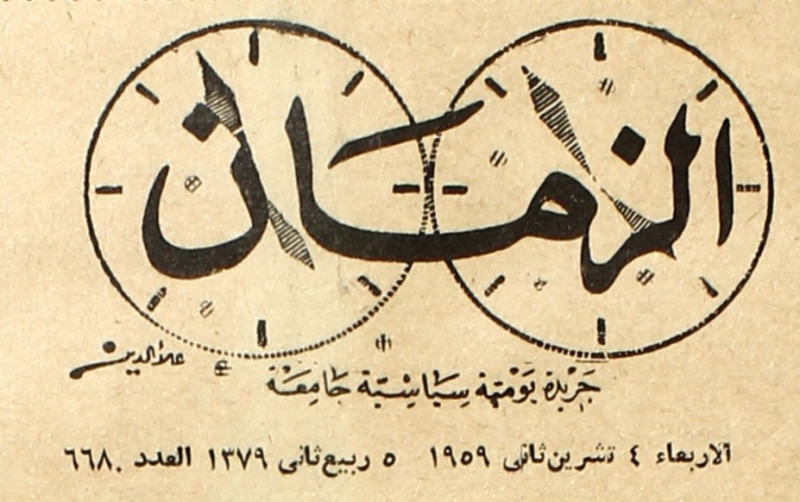 الزمان
علاءالدين
جريدة يومية سياسية جامعة
الاربعاء ٤ تشرين ثانى ١٩٥٩ ٥ ربيع ثانى ١٣٧٩ العدد ٦٦٨٠